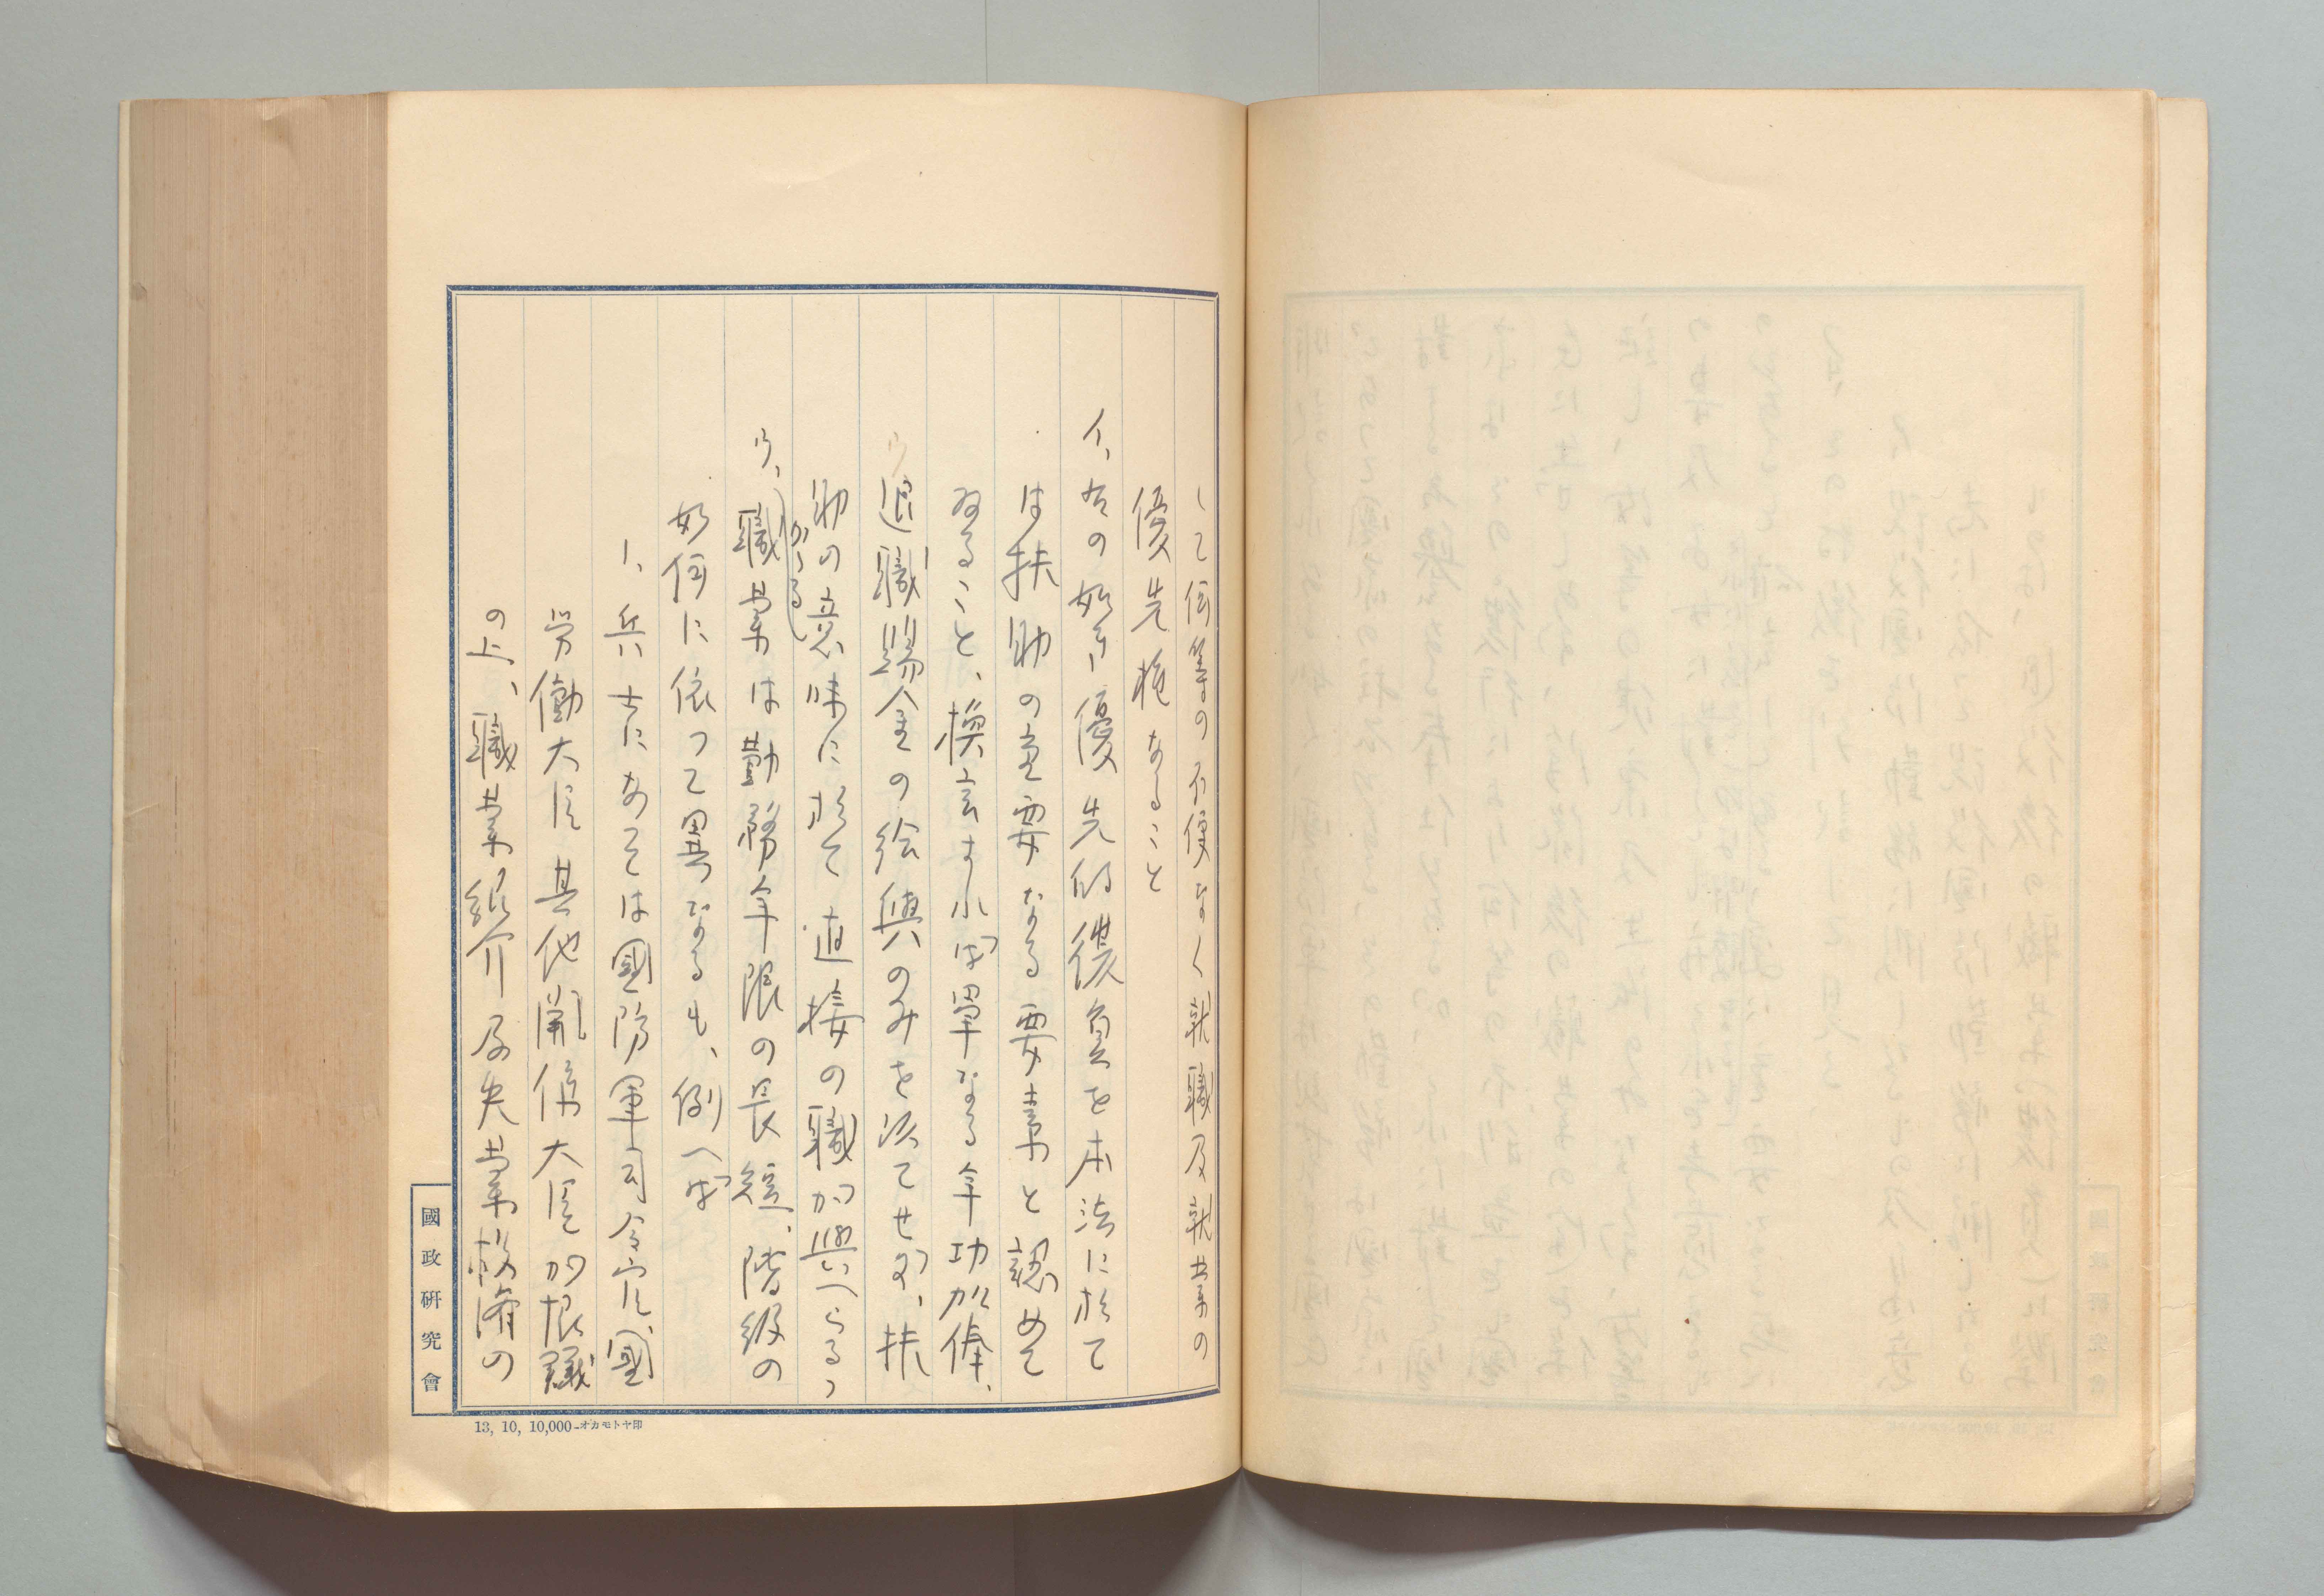 して何等の不便なく就職及就業の
優先権なること
イ、右の如き優先的償負を本法に於て
は扶助の重要なる要素と認めて
ゐること、換言すれば單なる年功加俸、
ウ退職賜金の給與のみを以てせず、扶
助の意味に於て直接の職が與へらるゝ
かゝる
ウ、職業は勤務年限の長短、階級の
如何に依って異なるも、例へば
1、兵士にあっては國防軍司令官、國
勞働大臣其他關係大臣が根議
の上、職業紹介及失業救濟の
國政研究會
13, 10, 10,000 -オカモトヤ印